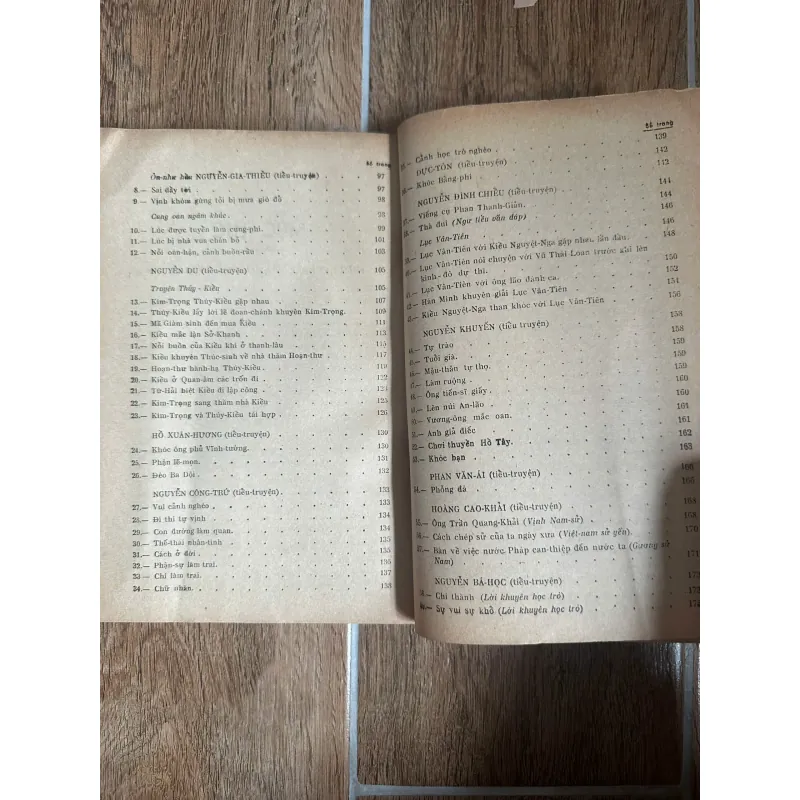 Số trang
Ôn-như hầu NGUYỄN-GIA-THIỀU (tiểu-truyện) 97
8.— Sai dầy tới 97
9.— Vịnh khóm gừng tỏi bị mưa gió đổ 98
Cung oán ngâm khúc. 98
10.— Lúc được tuyển làm cung-phi. 99
11.— Lúc bị nhà vua chán bỏ 101
12.— Nỗi oán-hận, cảnh buồn-rầu 103
NGUYỄN DU (tiểu-truyện) 105
Truyện Thúy - Kiều 105
13.— Kim-Trọng Thúy-Kiều gặp nhau 107
14.— Thúy-Kiều lấy lời lẽ đoan-chánh khuyên Kim-Trọng. 109
15.— Mã Giám sinh đến mua Kiều 111
16.— Kiều mắc lận Sở-Khanh 113
17.— Nỗi buồn của Kiều khi ở thanh-lâu 115
18.— Kiều khuyên Thúc-sinh về nhà thăm Hoạn-thư 117
19.— Hoạn-thư hành-hạ Thúy-Kiều 119
20.— Kiều ở Quan-âm các trốn đi 122
21.— Từ-Hải biệt Kiều đi lập công 123
22.— Kim-Trọng sang thăm nhà Kiều 124
23.— Kim-Trọng và Thúy-Kiều tái hợp 126
HỒ XUÂN-HƯƠNG (tiểu-truyện) 130
24.— Khóc ông phủ Vĩnh-tường. 130
25.— Phận lẽ-mọn. 131
26.— Đèo Ba Dội 132
NGUYỄN CÔNG-TRỨ (tiểu-truyện) 133
27.— Vui cảnh nghèo 133
28.— Đi thi tự vịnh 134
29.— Con đường làm quan. 134
30.— Thế-thái nhân-tình 134
31.— Cách ở đời 135
32.— Phận-sự làm trai. 136
33.— Chí làm trai. 137
34.— Chữ nhàn. 138
Số trang
35.— Cảnh học trò nghèo 139
ĐỰC-TÔN (tiểu-truyện) 142
36.— Khóc Bằng-phi 142
NGUYỄN ĐÌNH CHIỂU (tiểu-truyện) 144
37.— Viếng cụ Phan Thanh-Giản. 144
38.— Thà đui (Ngư tiều vấn đáp) 146
Lục Vân-Tiên 146
39.— Lục Vân-Tiên với Kiều Nguyệt-Nga gặp nhau lần đầu. 148
40.— Lục Vân-Tiên nói chuyện với Võ Thái Loan trước khi lên
kinh-đô dự thi. 150
41.— Lục Vân-Tiên với ông lão đánh-cá 152
42.— Hán Minh khuyên-giải Lục Vân-Tiên 154
43.— Kiều Nguyệt-Nga than khóc với Lục Vân-Tiên 156
NGUYỄN KHUYẾN (tiểu-truyện) 158
44.— Tự trào 158
45.— Tuổi già. 159
46.— Mậu-thân tự thọ. 159
47.— Làm ruộng 159
48.— Ông tiến-sĩ giấy. 160
49.— Lên núi An-lão 160
50.— Vương-ông mắc oan. 161
51.— Anh giả điếc 161
52.— Chơi thuyền Hồ Tây. 162
53.— Khóc bạn 163
PHAN VĂN-ÁI (tiểu-truyện) 166
54.— Phỗng đá 166
HOÀNG CAO-KHẢI (tiểu-truyện) 168
55.— Ông Trần Quang-Khải (Vịnh Nam-sử) 168
56.— Cách chép sử của ta ngày xưa (Việt-nam sử yếu)
57.— Bàn về việc nước Pháp can-thiệp đến nước ta (Gương sử
Nam) 171
NGUYỄN BÁ-HỌC (tiểu-truyện) 173
Chí thành (Lời khuyên học trò)
Sự vui sự khổ (Lời khuyên học trò)